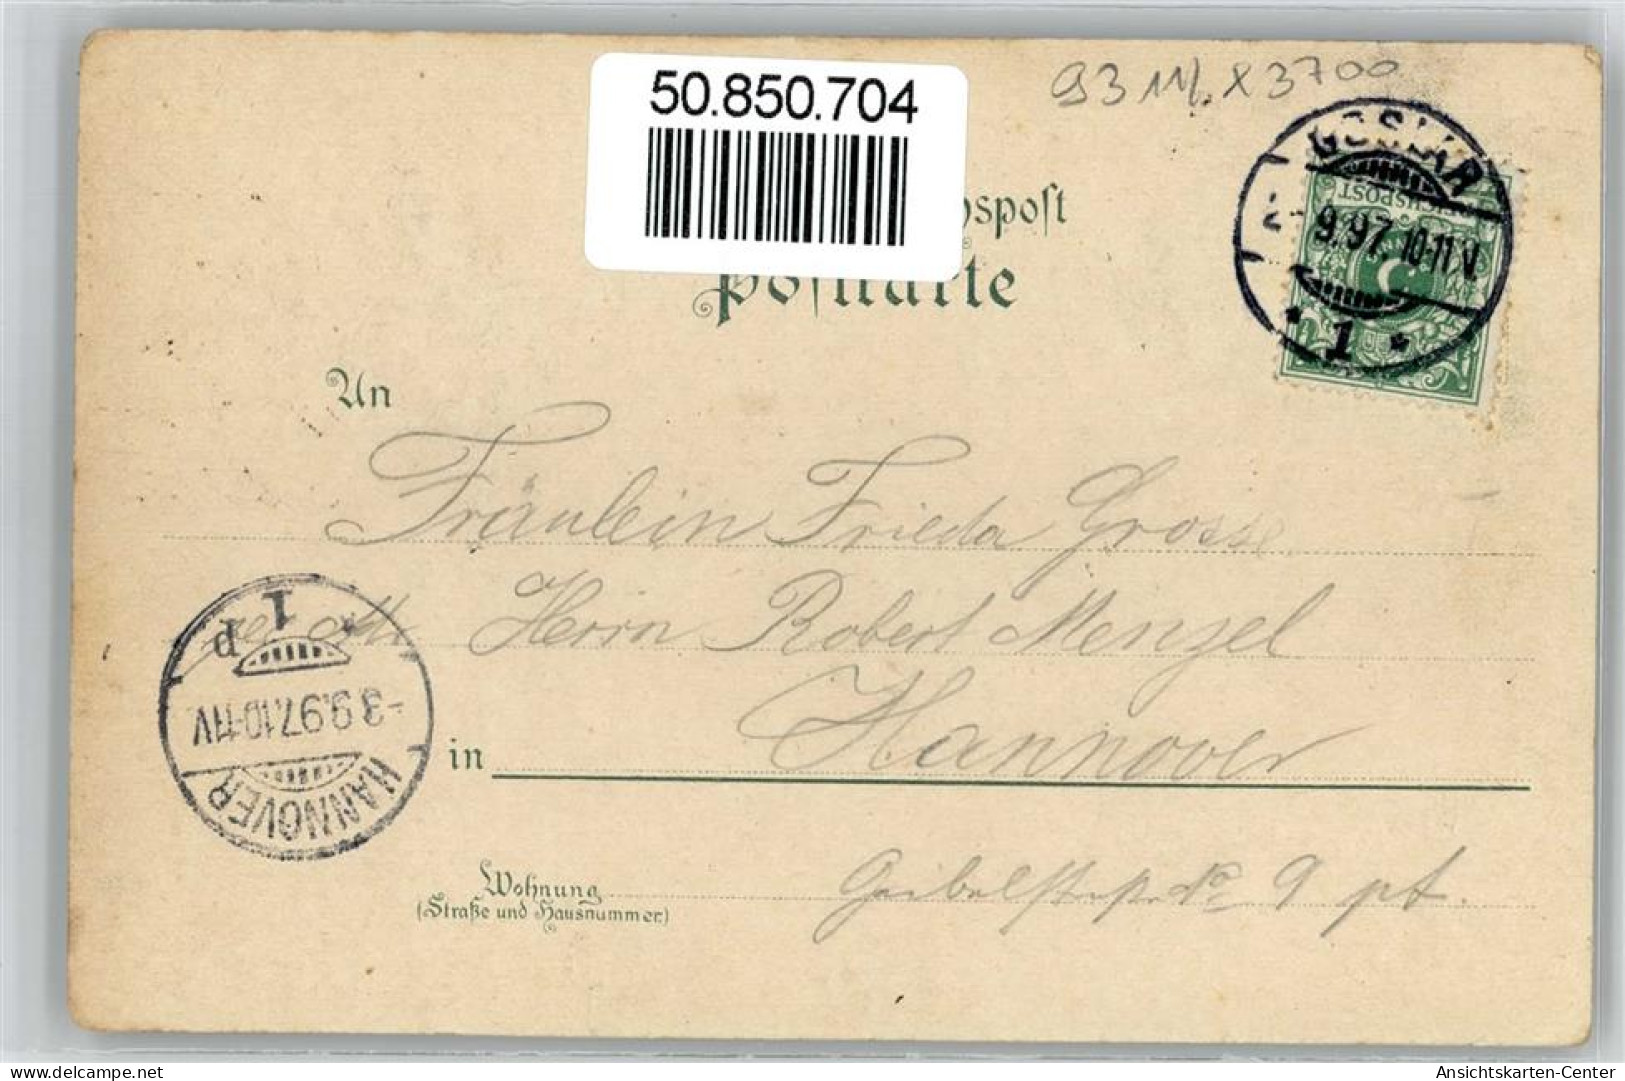 50.850.704
93 M. x 3700
GOSLAR
2. 9.97. 10-11 V.
* 1 *
REICHSPOST
hspost
Postkarte
An
Fräulein Frieda Grosse
Herrn Robert Menzel
1 p
-3.9.97.10-11V
HANNOVER
in Hannover
Wohnung
(Straße und Hausnummer)
Geibelstr. No 9 pt.
delcampe.net
Ansichtskarten-Center